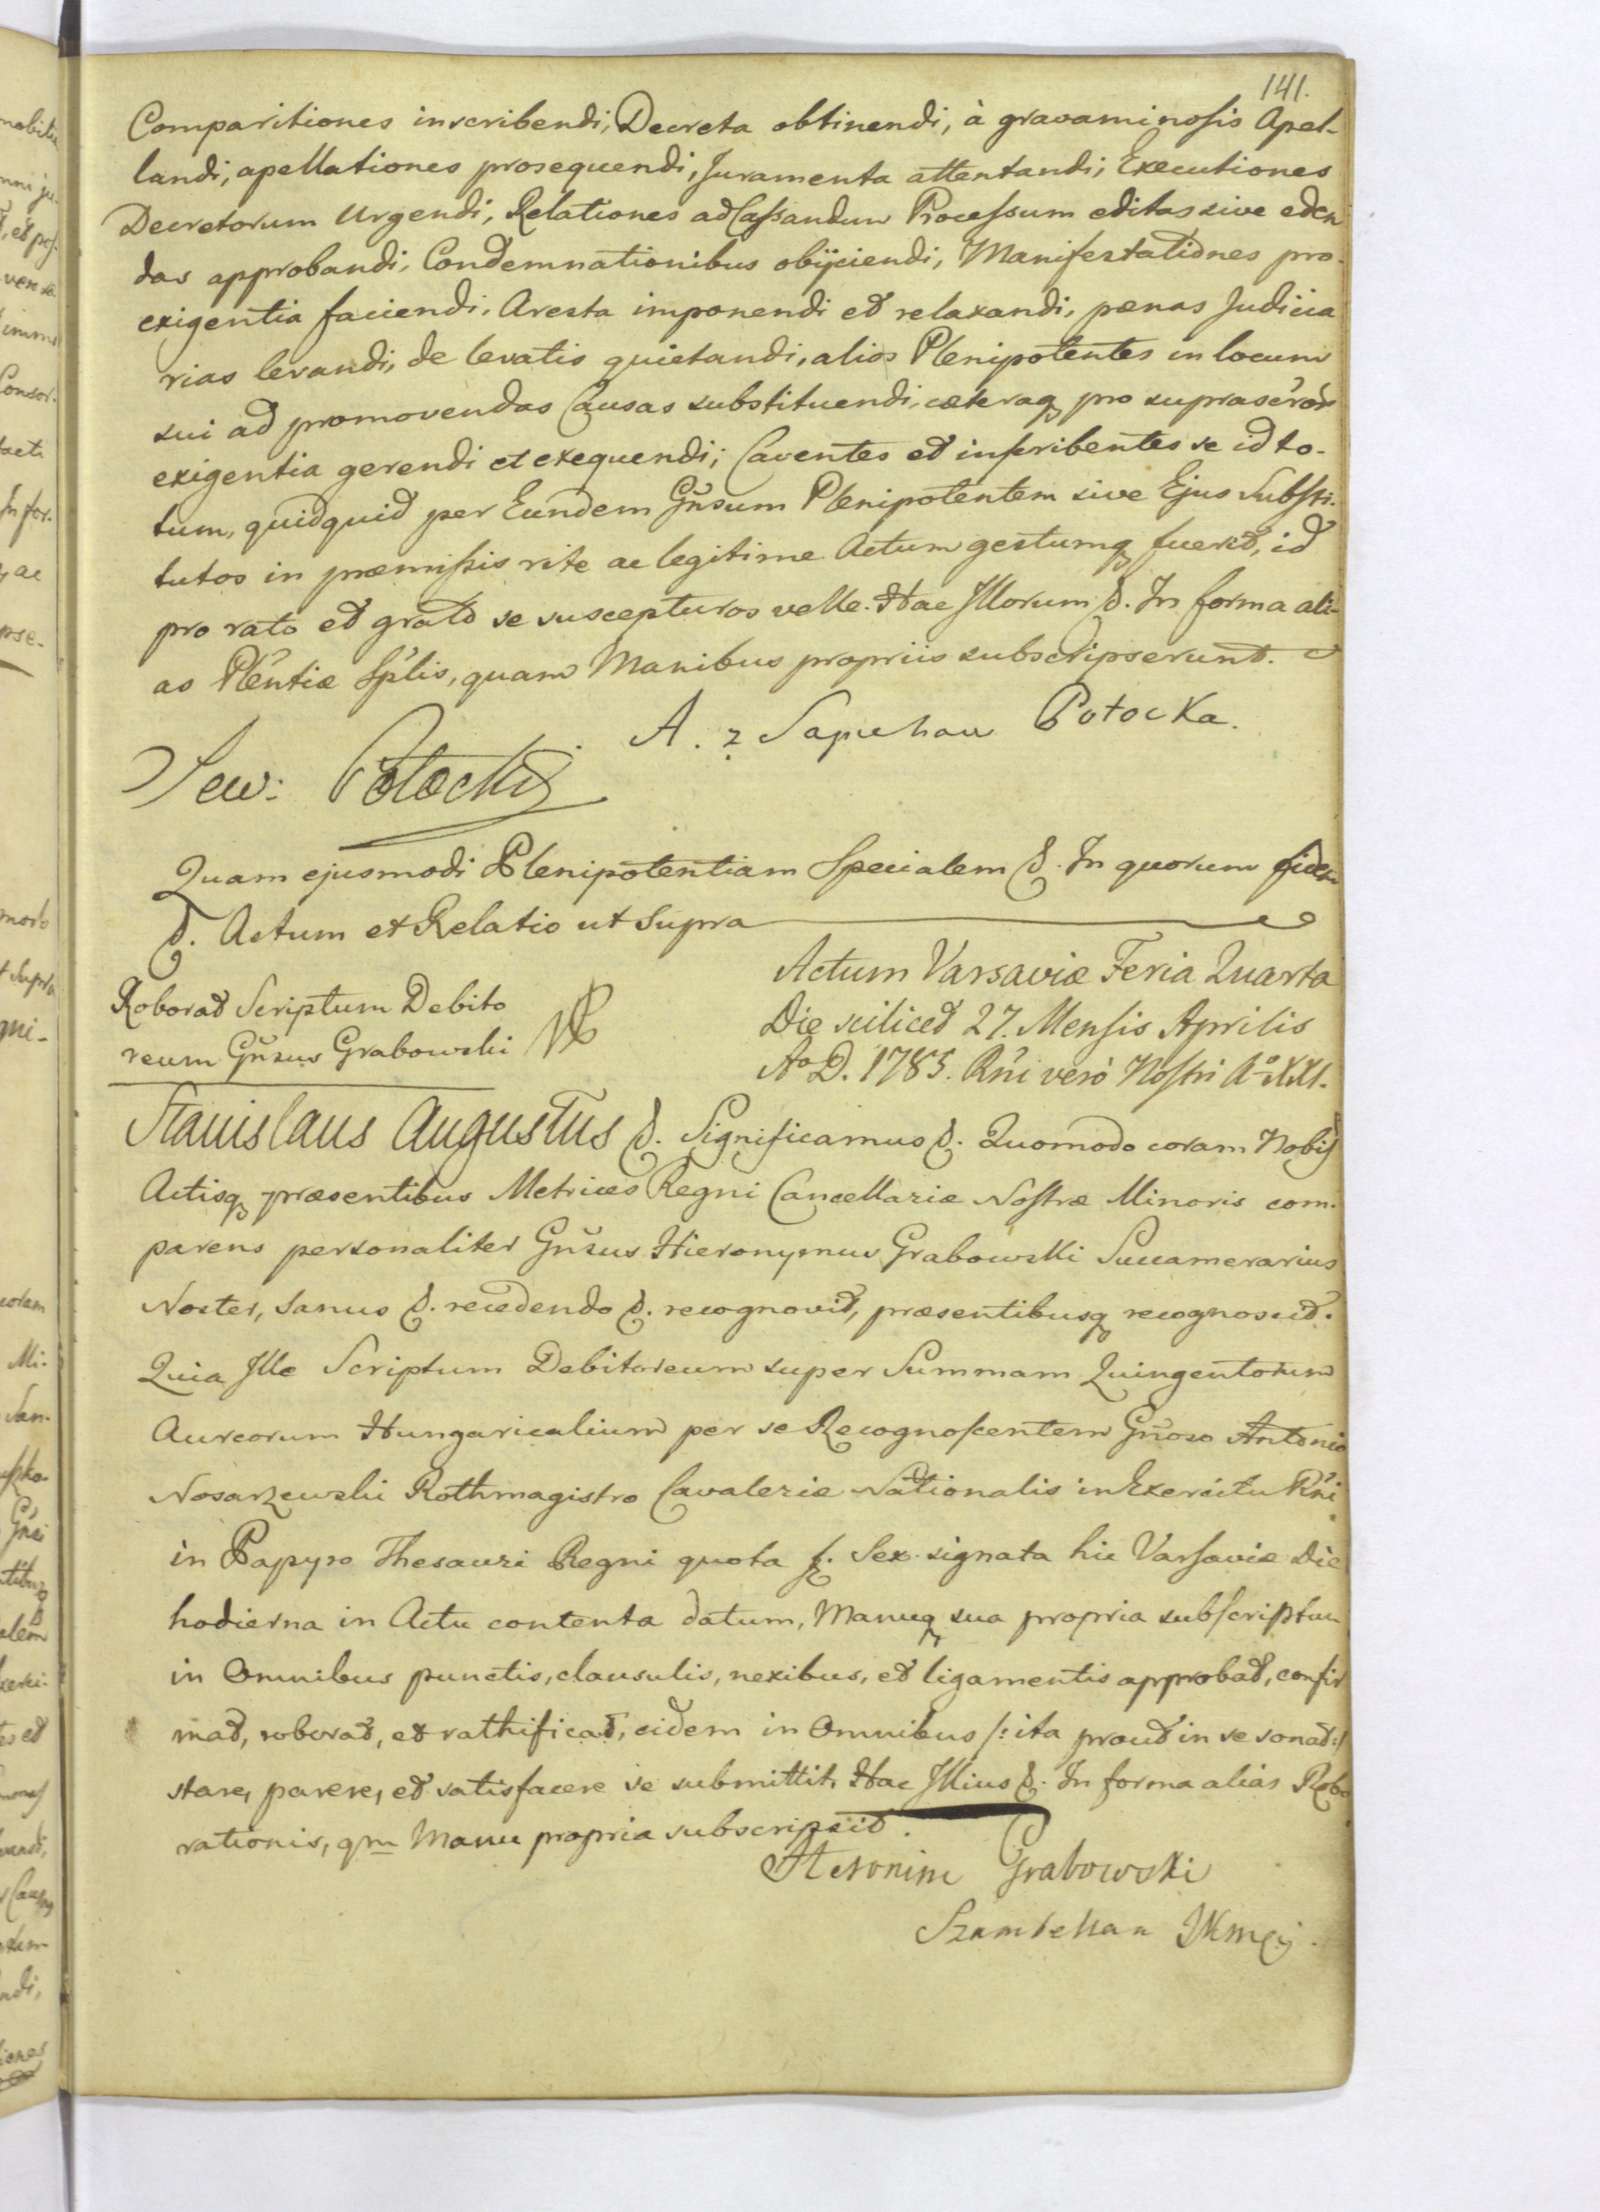 141.
Comparitiones inscribendi, Decreta obtinendi, à gravaminosis Apel-
landi, apellationes prosequendi, Juramenta attentandi, Executiones
Decretorum Urgendi, Relationes ad Cassandum Processum editas sive eden
das approbandi, Condemnationibus obijciendi, Manifestationes pro
exigentia faciendi, Aresta imponendi et relaxandi, pœnas Judicia
rias levandi, de levatis quietandi, alios Plenipotentes in locum
sui ad promovendas Causas substituendi, cæteraq pro suprascror
exigentia gerendi et exequendi; Caventes et inscribentes se id to-
tum, quidquid per Eundem Gnsum Plenipotentem sive Ejus Substi-
tutos in præmissis rite ac legitime Actum gestumq fuerit, id
pro rato et grato se suscepturos velle. Hac Illorum &. In forma ali-
as Plentiæ Splis, quam Manibus propriis subscripserunt.
A. z Sapiehow Potocka.
Sew: Potocki
Quam ejusmodi Plenipotentiam Specialem &. In quorum fidem
&. Actum et Relatio ut Supra
Roborat Scriptum Debito
reum Gnsus Grabowski
Actum Varsaviæ Feria Quarta
Die scilicet 27. Mensis Aprilis
Ao D. 1785. Rni verò Nostri Ao XXI.
Stanislaus Augustus &. Significamus &. Quomodo coram Nobis
Actisq præsentibus Metrices Regni Cancellariæ Nostræ Minoris com-
parens personaliter Gnsus Hieronymus Grabowski Succamerarius
Noster, Sanus &. recedendo &. recognovit, præsentibusq recognoscit.
Quia Ille Scriptum Debitoreum super Summam Quingentorum
Aureorum Hungaricalium per se Recognoscentem Gnoso Antonio
Nosarzewski Rothmagistro Cavaleriæ Nationalis in Exercitu Rni
in Papyro Thesauri Regni quota f. Sex signata hic Varsaviæ Die
hodierna in Actu contenta datum, Manuq sua propria subscriptum
in Omnibus punctis, clausulis, nexibus, et ligamentis approbat, confir
mat, roborat, et rathificat, eidem in Omnibus /: ita prout in se sonat :/
stare, parere, et satisfacere se submittit. Hac Illius &. In forma alias Robo
rationis, qm Manu propria subscripsit.
Hieronim Grabowski
Szambellan JKmci.